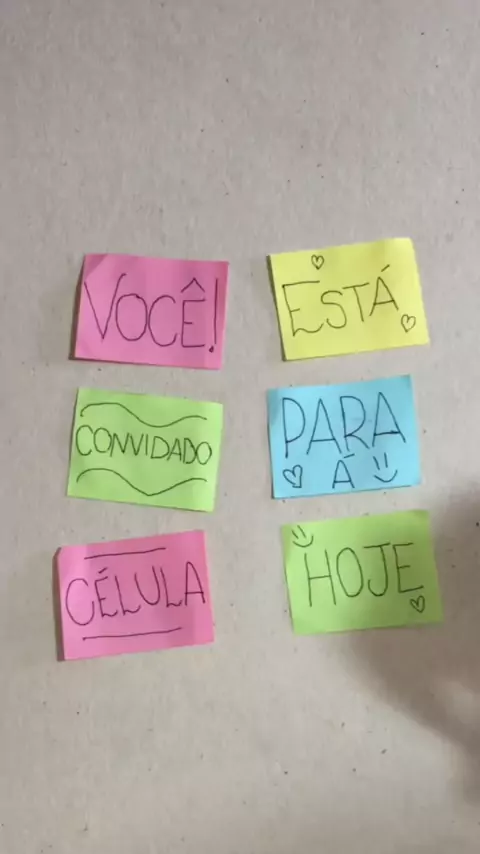 VOCÊ!
ESTÁ
CONVIDADO
PARA
Á
CÉLULA
HOJE